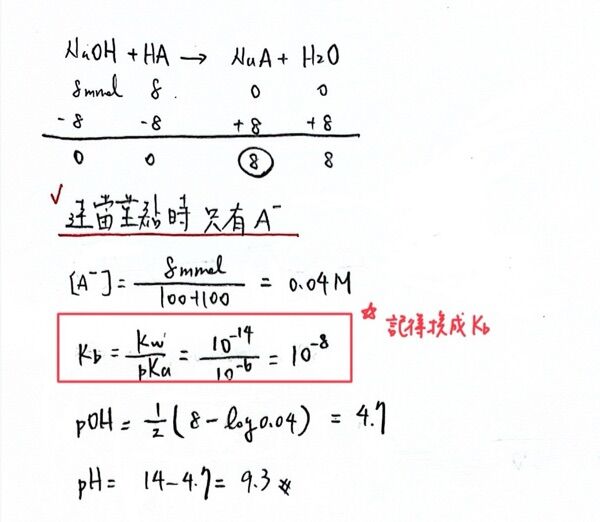 NaOH + HA → NaA + H2O
8mmol 8 0 0
-8 -8 +8 +8
0 0 8 8
✓ 達當量點時 只有 A⁻
[A⁻] = 8mmol / 100+100 = 0.04 M
Kb = Kw / pKa = 10⁻¹⁴ / 10⁻⁶ = 10⁻⁸ ☆ 記得換成 Kb
pOH = 1/2 (8 - log 0.04) = 4.7
pH = 14 - 4.7 = 9.3 #